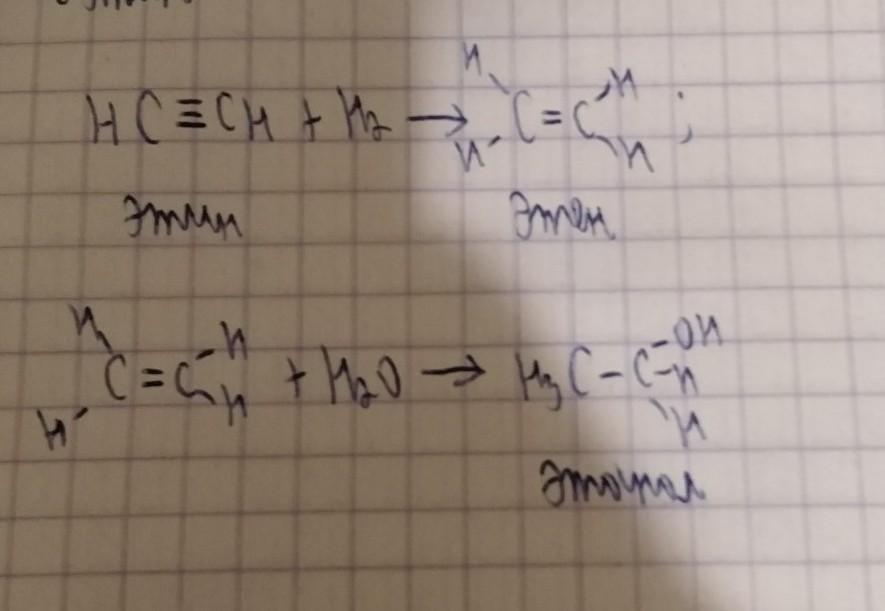 HC≡CH + H₂ → H H C=C H H ;
Этин Этен
H H C=C H H + H₂O → H₃C-C-OH -H H
Этанол